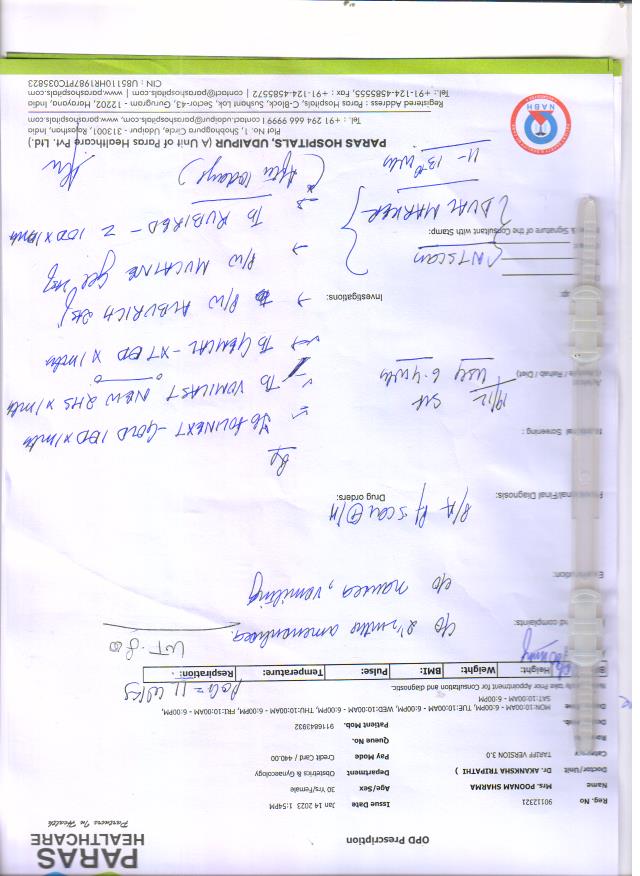 PARAS
HEALTHCARE
Partners In Health
OPD Prescription
Reg. No 90112321 Issue Date Jan 14 2023 1:54PM
Name Mrs. POONAM SHARMA Age/Sex 30 Yrs/Female
Doctor/Unit Dr. AKANKSHA TRIPATHI ) Department Obstetrics & Gynaecology
TARIFF VERSION 3.0 Pay Mode Credit Card / 440.00
Queue No.
Patient Mob. 9116843932
MON:10:00AM - 6:00PM, TUE:10:00AM - 6:00PM, WED:10:00AM - 6:00PM, THU:10:00AM - 6:00PM, FRI:10:00AM - 6:00PM,
SAT:10:00AM - 6:00PM
take Prior Appointment for Consultation and diagnostic.
POG = 11 wks
Height: Weight: BMI: Pulse: Temperature: Respiration:
WT-
complaints:
c/o 2½ mths amenorrhoea
c/o nausea, vomiting
Final Diagnosis:
Drug orders:
Screening :
Rehab / Diet)
19/12
USG 6.4 wks
Tb FOLINEXT-GOLD 1 OD x 1 mth
Tb VOMILAST NEW 2HS x 1 mth
Tb GEMCAL-XT BD x 1 mth
Investigations:
P/W ALBURICH
P/W MUCAINE Gel
Tb RUBIRED-Z 1OD x 1 mth
NT scan
DUAL MARKER
11-13+6 wks
& Signature of the Consultant with Stamp:
PARAS HOSPITALS, UDAIPUR (A Unit of Paras Healthcare Pvt. Ltd.)
Plot No. 1, Shobhagpura Circle, Udaipur - 313001, Rajasthan, India
Tel. : +91 294 666 9999 I contact.udaipur@parashospitals.com, www.parashospitals.com
Registered Address : Paras Hospitals, C-Block, Sushant Lok, Sector-43, Gurugram - 12202, Haryana, India
Tel.: +91-124-4585555, Fax : +91-124-4585572 | contact@parashospitals.com | www.parashospitals.com
CIN : U85110HR1987PTC035823
NABH